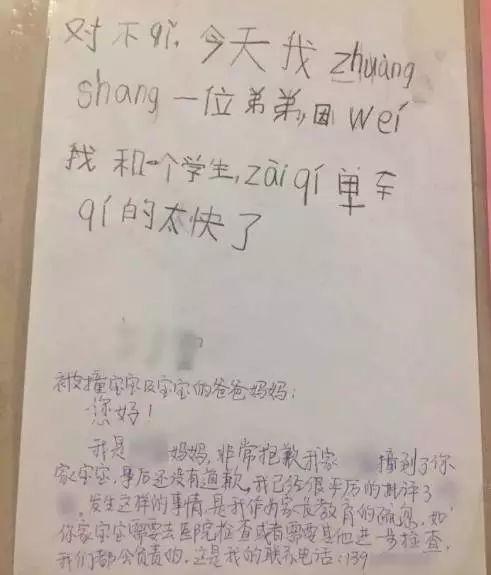 对不qǐ,今天我zhuàng
shang一位弟弟,因wèi
我和一个学生,zài qí单车
qí的太快了
被撞宝宝及宝宝的爸爸妈妈:
您好!
我是 妈妈,非常抱歉我家 撞到了你
家宝宝,事后还没有道歉,我已经很严厉的批评了
,发生这样的事情,是我作为家长教育的确忽,如
你家宝宝需要去医院检查或者需要其他进一步检查,
我们都会负责的,这是我的联系电话:139